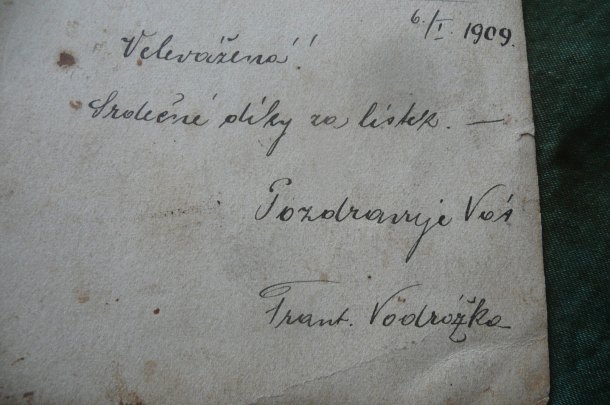 6./I. 1909.
Velevážená!
Srdečné díky za lístek. —
Pozdravuje Vás
Frant. Vodrážka